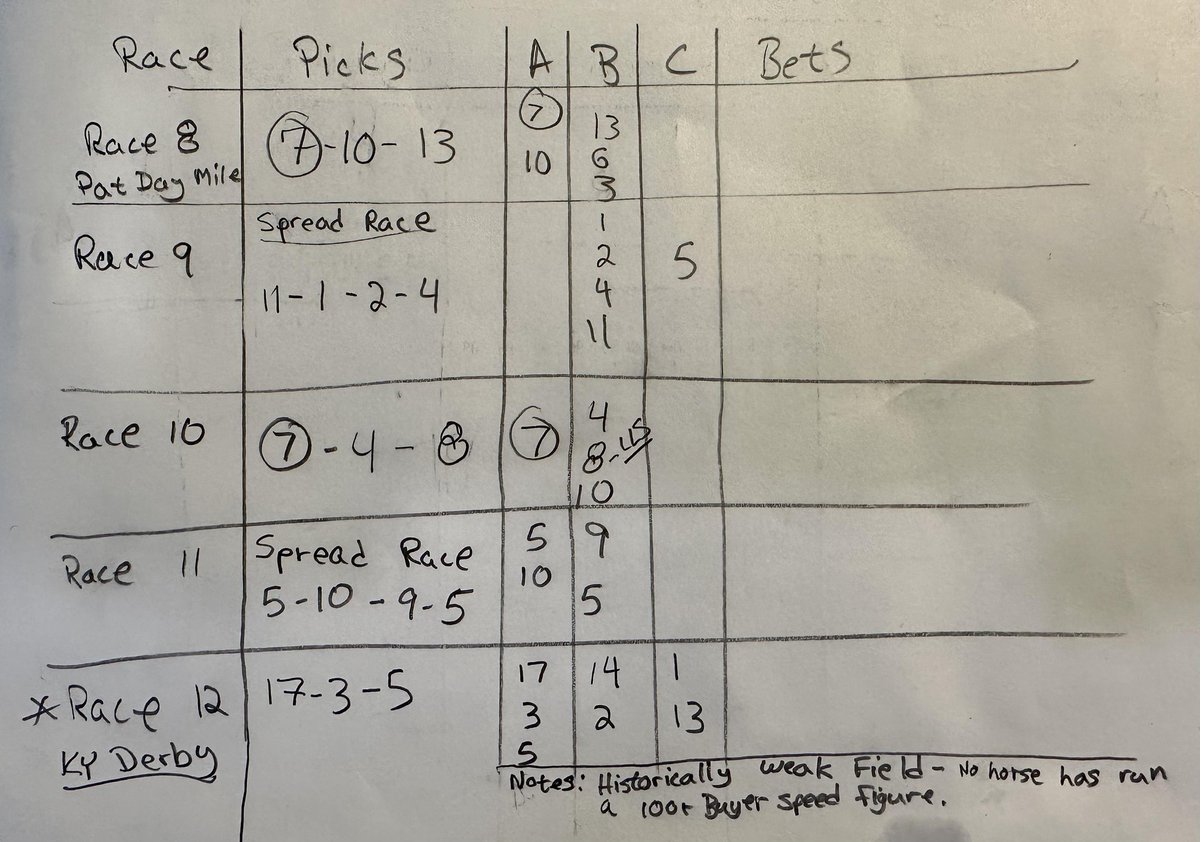 Race Picks A B C Bets
Race 8 ⑦-10-13 ⑦ 13
Pat Day Mile 10 6
3
Spread Race 1
Race 9 2 5
11-1-2-4 4
11
Race 10 ⑦-4-8 ⑦ 4
8-
10
Race 11 Spread Race 5 9
5-10-9-5 10 5
*Race 12 17-3-5 17 14 1
KY Derby 3 2 13
5
Notes: Historically weak Field - No horse has run
a 100+ Buyer speed figure.